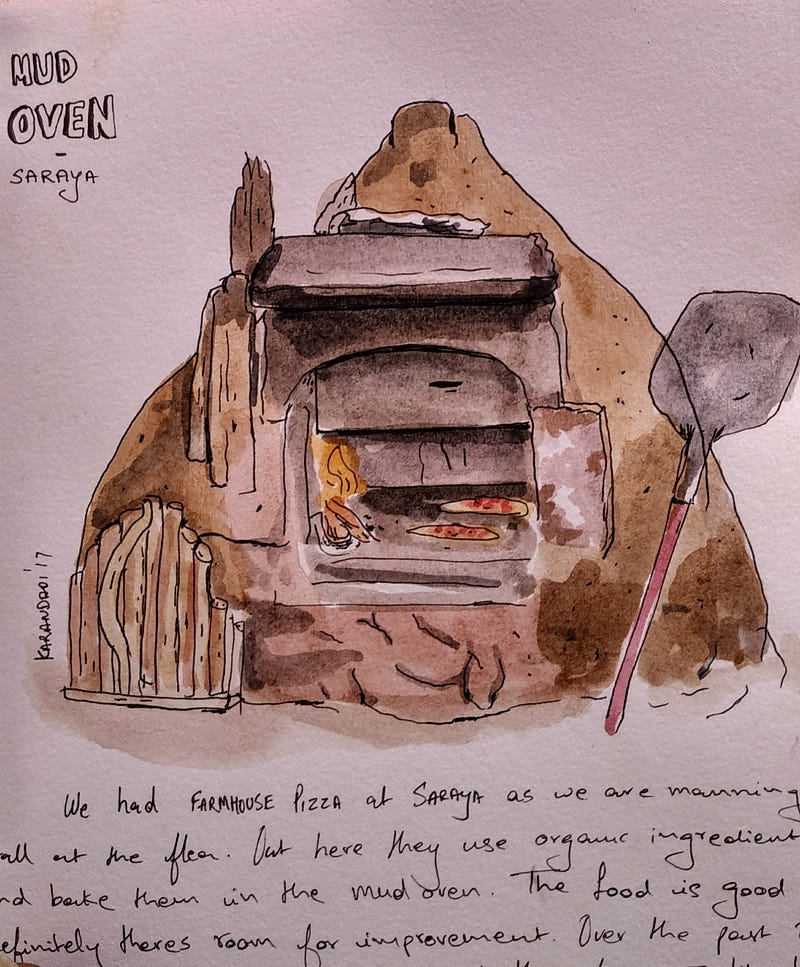 MUD
OVEN
-
SARAYA
KARANDADI '17
We had FARMHOUSE PIZZA at SARAYA as we are manning
all at the flea. Out here they use organic ingredient
nd bake them in the mud oven. The food is good
efinitely theres room for improvement. Over the past